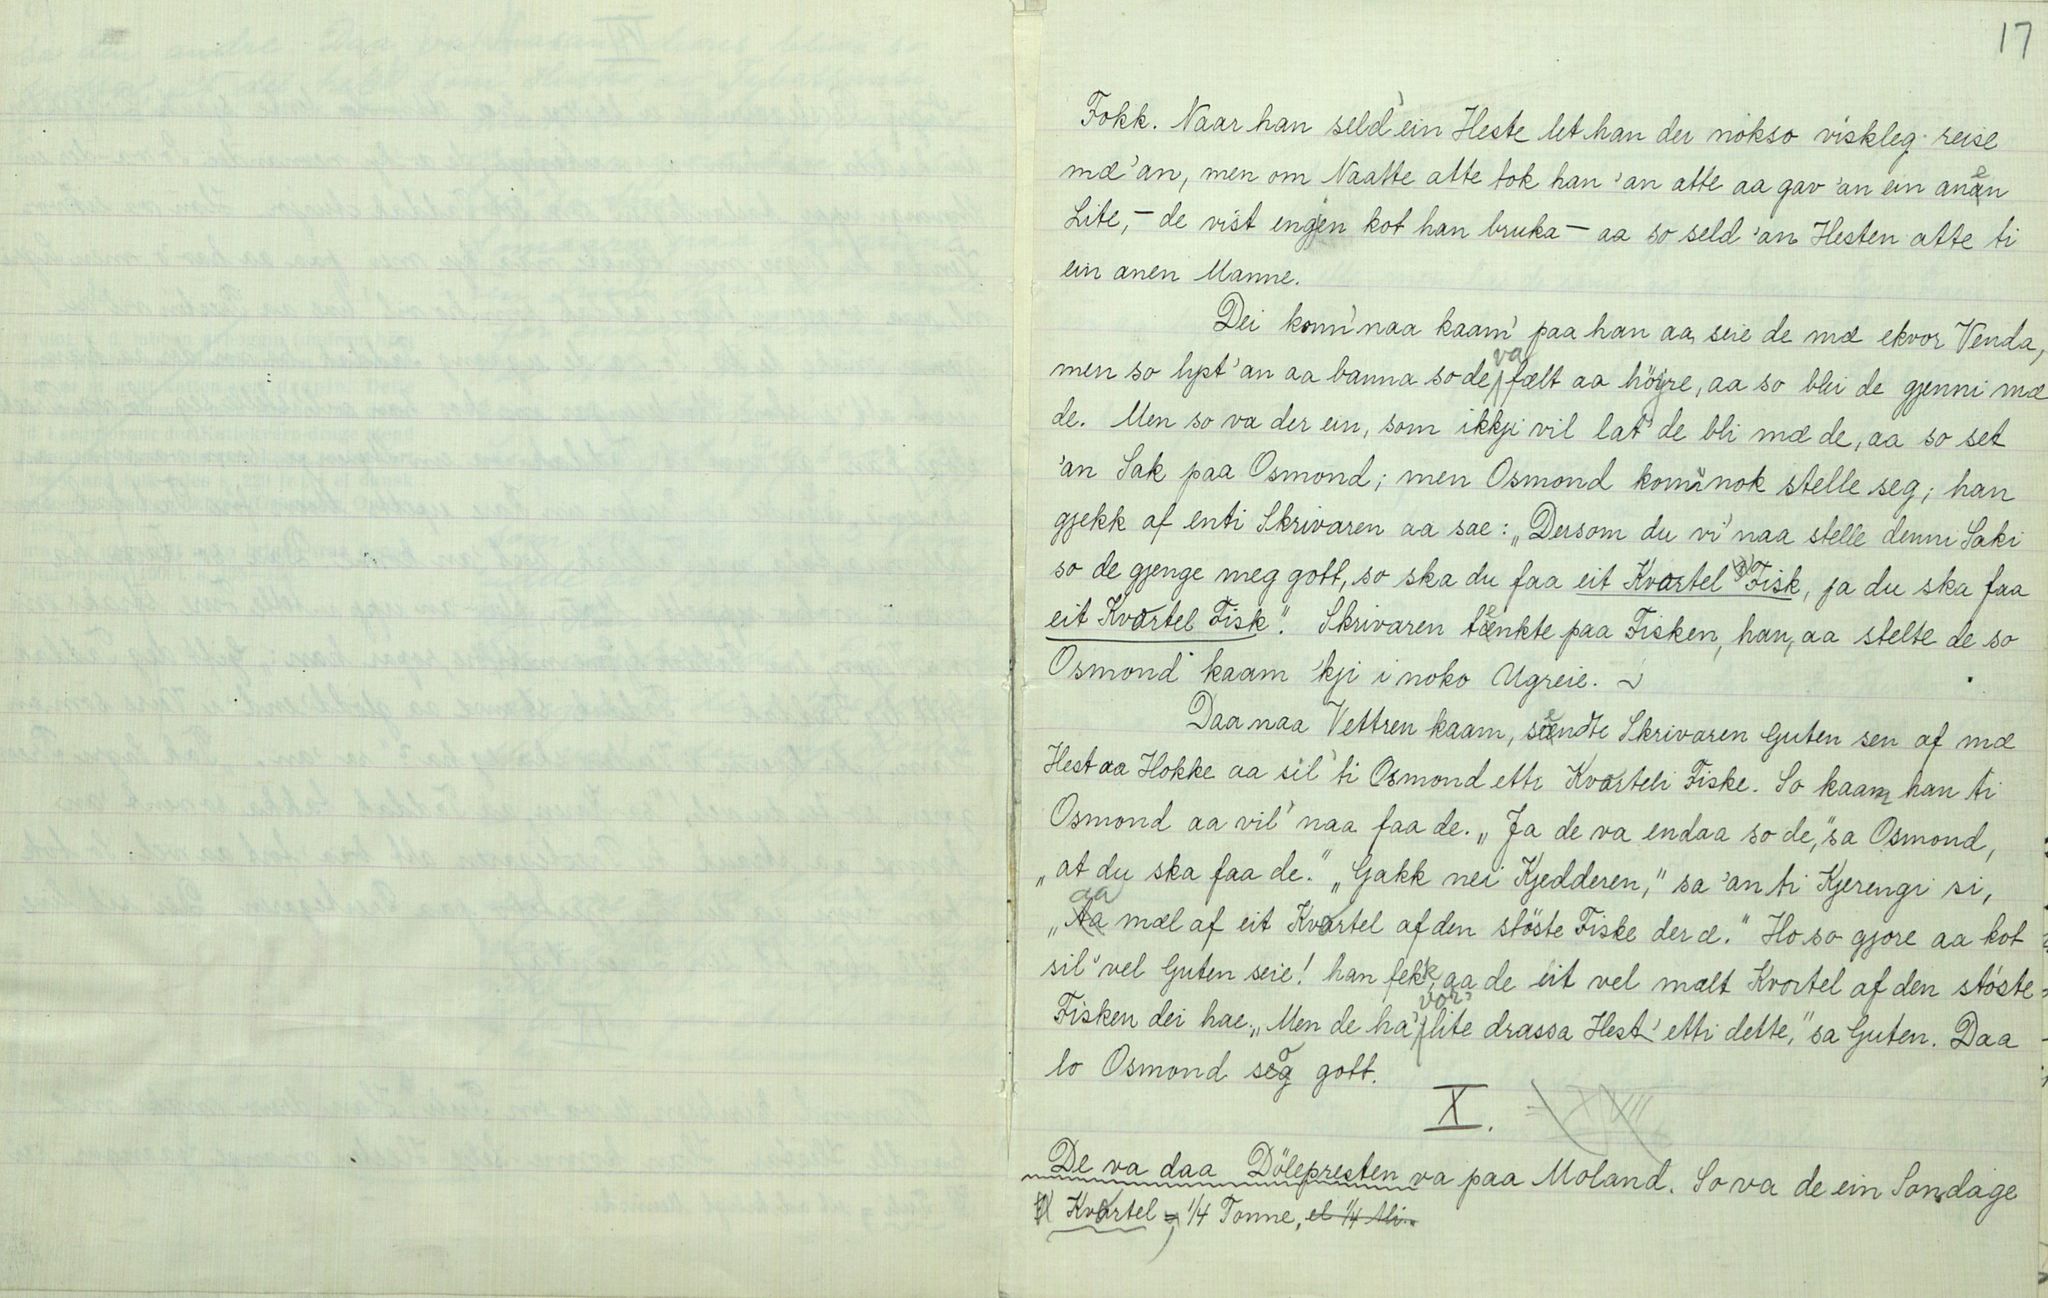 17
Fokk. Naar han seld' ein Heste let han dei nokso viskleg reise
mæ 'an, men om Naatte atte tok han 'an atte aa gav 'an ein anen
Lite, – de vist engjen kot han bruka – aa so seld 'an Hesten atte ti
ein anen Manne.
Dei komm' naa kaam' paa han aa seie de mæ ekvor Venda,
men so lypt 'an aa banna so de va fælt aa höyre, aa so blei de gjenni mæ
de. Men so va der ein, som ikkji vil lat' de bli mæ de, aa so set
'an Sak paa Osmond; men Osmond komm' nok stelle seg; han
gjekk af enti Skrivaren aa sae: „Dersom du vi' naa stelle denni Saki
so de gjenge meg gott, so ska du faa eit Kvartel x) Fisk, ja du ska faa
eit Kvartel Fisk". Skrivaren tenkte paa Fisken, han, aa stelte de so
Osmond kaam 'kji i noko Ugreie.
Daa naa Vettren kaam, sendte Skrivaren Guten sen af mæ
Hest aa Hokke aa sil' ti Osmond etti Kvarteli Fiske. So kaam han ti
Osmond aa vil' naa faa de. „Ja de va endaa so de," sa Osmond,
„at du ska faa de." „Gakk nei Kjedderen," sa 'an ti Kjerengi si,
„aa mæl af eit Kvartel af den stöste Fiske der æ." Ho so gjore aa kot
sil' vel Guten seie! han fekk, aa de eit vel mælt Kvartel af den stöste
Fisken dei hae. „Men de ha' vor' lite drassa Hest' etti dette," sa Guten. Daa
lo Osmond sog gott.
X. XVII
De va daa Dölepresten va paa Moland. So va de ein Sondage
x) Kvartel = 1/4 Tonne, el 1/4 Ali.